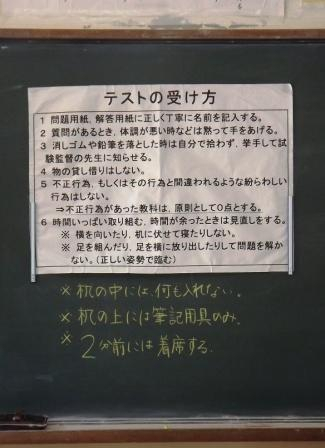 テストの受け方
1 問題用紙、解答用紙に正しく丁寧に名前を記入する。
2 質問があるとき、体調が悪い時などは黙って手をあげる。
3 消しゴムや鉛筆を落とした時は自分で拾わず、挙手して試
験監督の先生に知らせる。
4 物の貸し借りはしない。
5 不正行為、もしくはその行為と間違われるような紛らわしい
行為はしない。
⇒不正行為があった教科は、原則として0点とする。
6 時間いっぱい取り組む、時間が余ったときは見直しをする。
※ 横を向いたり、机に伏せて寝たりしない。
※ 足を組んだり、足を横に放り出したりして問題を解か
ない。(正しい姿勢で臨む)
※ 机の中には、何も入れない。
※ 机の上には筆記用具のみ。
※ 2分前には着席する。